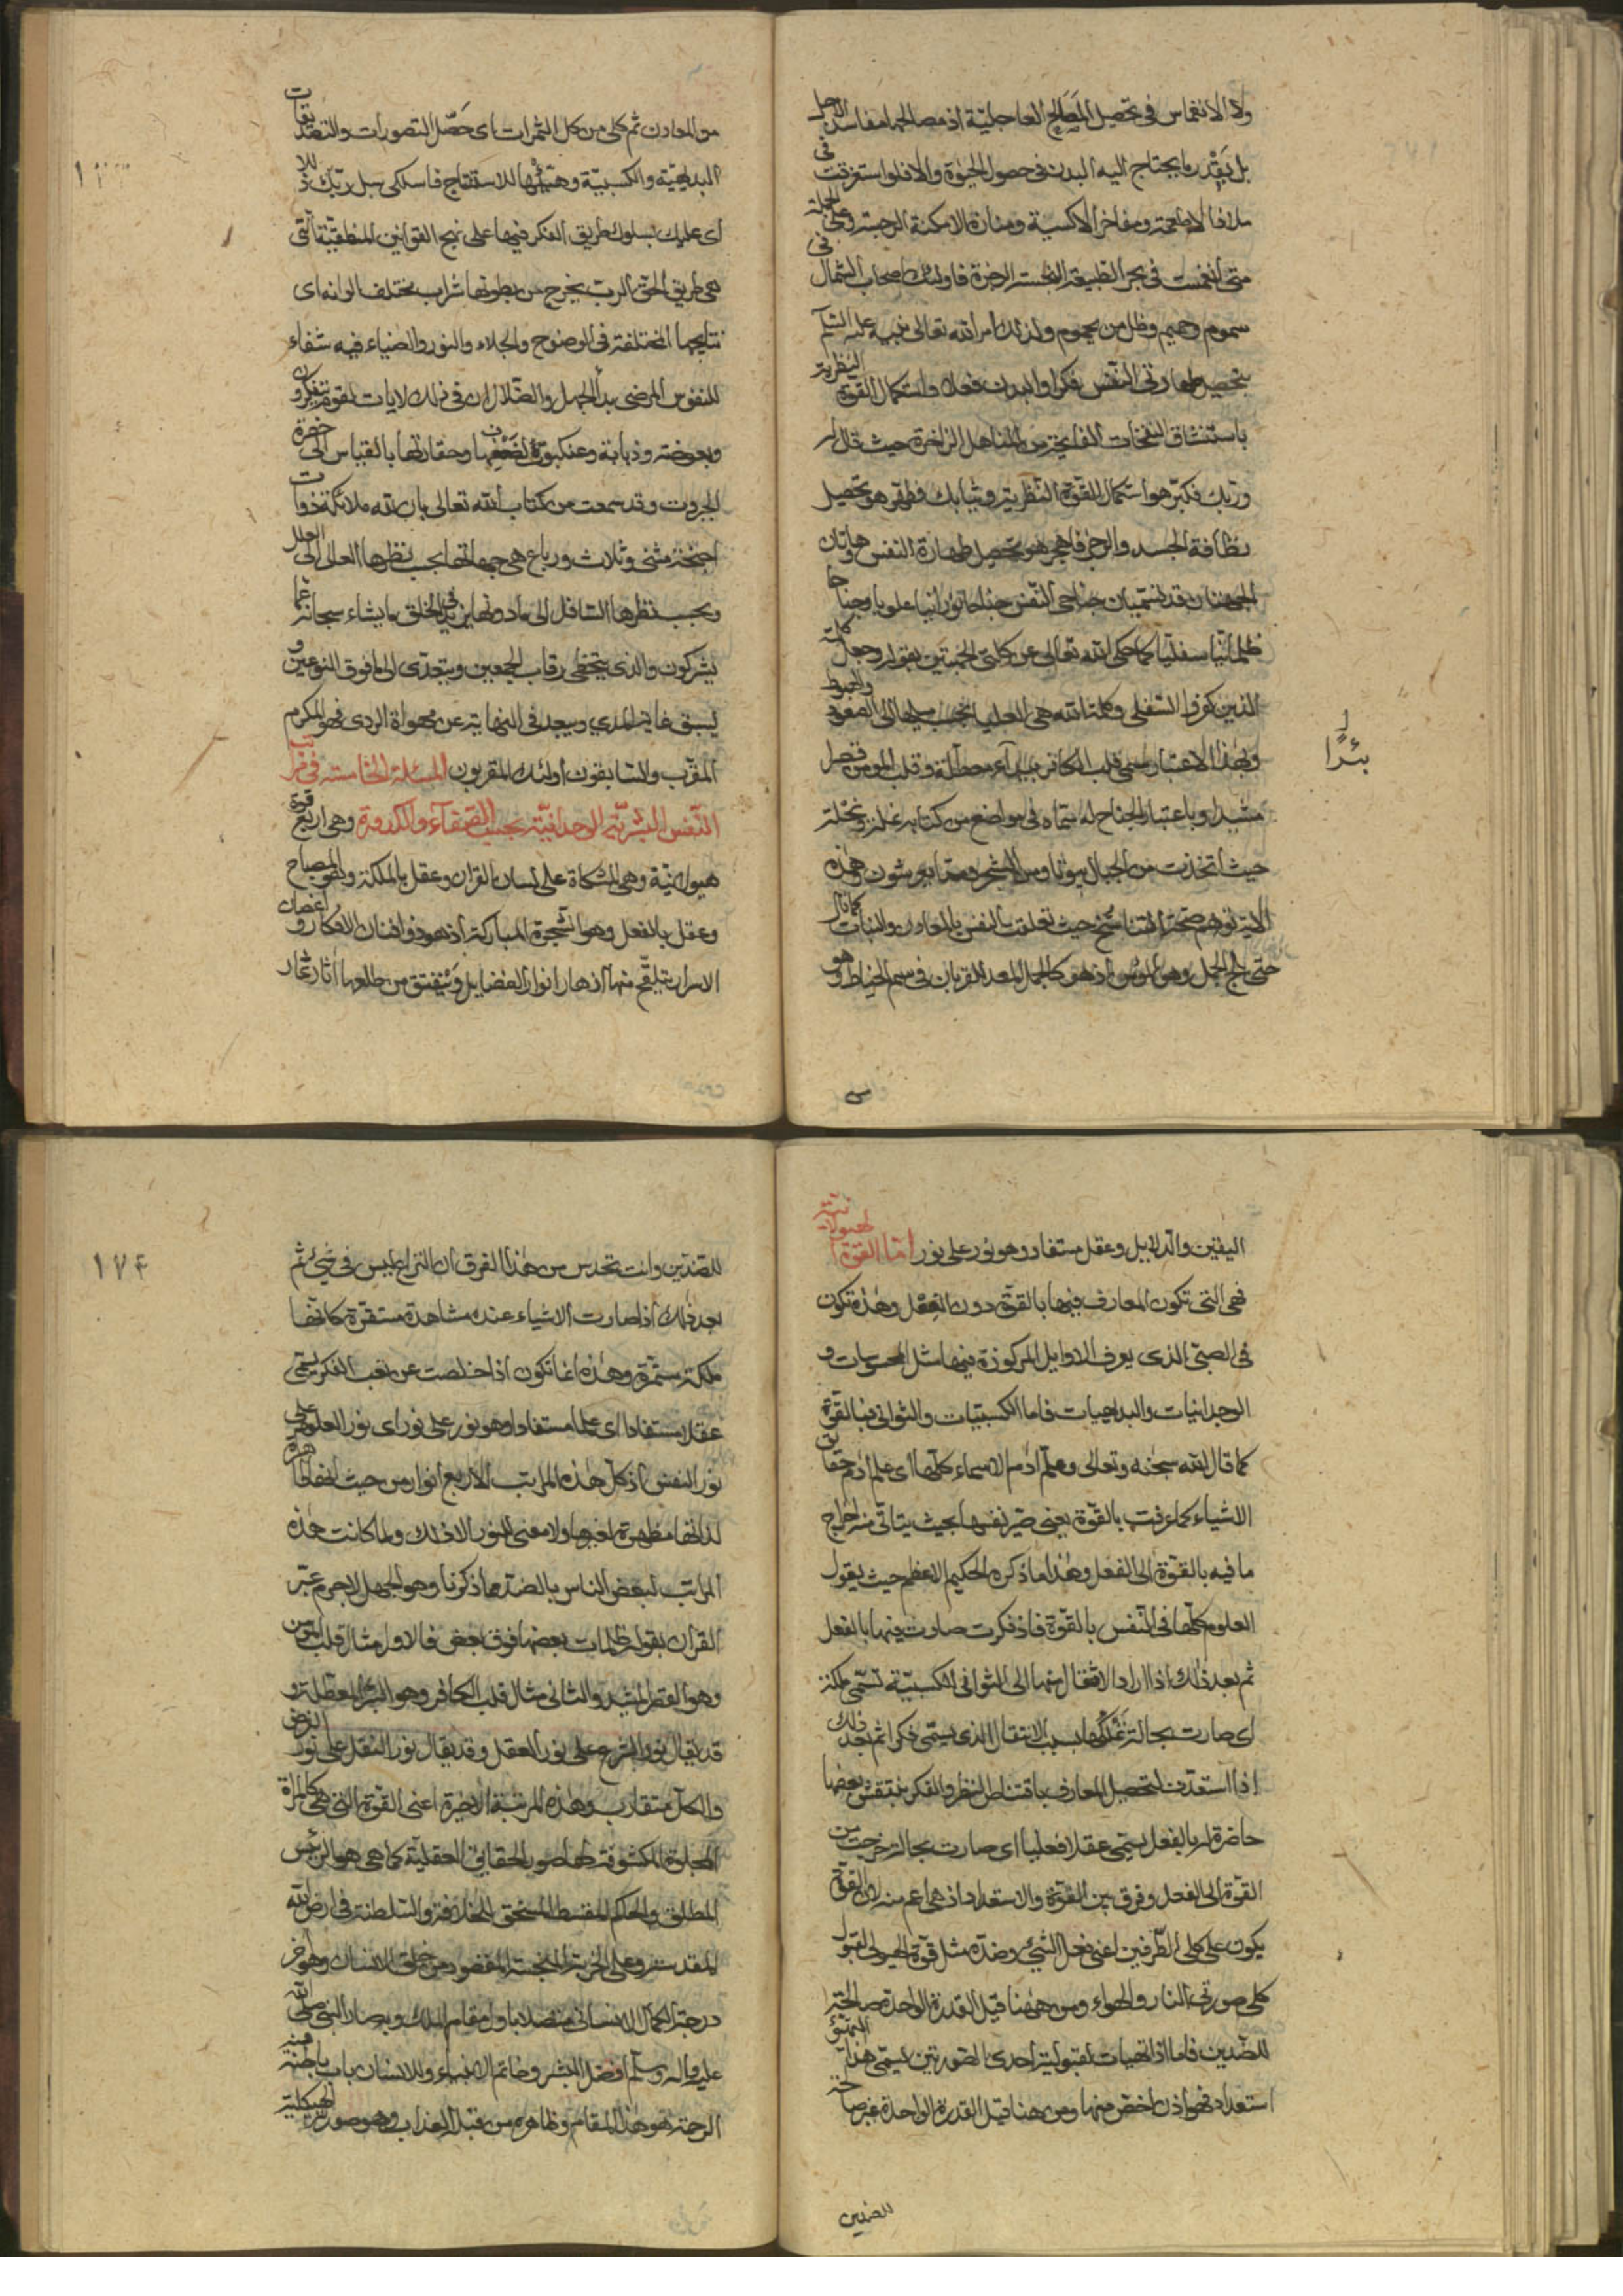 ولا الانغماس في تحصيل المصالح العاجلية اذ مصالحها مفاسد الاجل
بل بقدر ما يحتاج اليه البدن في حصول الحيوة والا فلو استغرقت في
ملاذ الاطعمة ومفاخر الاكسية ومنازه الامكنة الرحبة وعلى الجملة
متى انغمست في بحر الطبيعة النجسة الرجزة فاولئك اصحاب الشمال في
سموم وحميم وظل من يحموم ولذلك امر الله تعالى نبيه عليه السلام
بتحصيل طهارتي النفس فكرا والبدن فعلا واستكمال القوة النظرية
باستنشاق النفحات الفايحة من المناهل الزاخرة حيث قال له
وربك فكبر هو استكمال القوة النظرية وثيابك فطهر هو تحصيل
نظافة الجسد والرجز فاهجر هو تحصيل طهارة النفس وهاتان
الجهتان قد تسميان جناحي النفس جناحا نورانيا علويا وجناحا
ظلمانيا سفليا كما حكى الله تعالى عن كلتي الجهتين بقوله وجعل كلمة
الذين كفروا السفلى وكلمة الله هي العليا بحسب ميلها الى الصعود والهبوط
وبهذا الاعتبار سمى قلب الكافر بئرا معطلة وقلب المومن قصرا
مشيدا وباعتبار الجناح له سماه في مواضع من كتابه نملة ونحلة
حيث اتخذت من الجبال بيوتا ومن الشجر ومما يعرشون وهذه
الاية توهم صحة التناسخ حيث تعلقت النفس بالمعادن والنبات كما قال
حتى يلج الجمل وهو المومن اذ هو كالجمل المعد للقربان في سم الخياط وهو
بئرًا
من المعادن ثم كلي من كل الثمرات اى حصل التصورات والتصديقات
البديهية والكسبية وهيئها للاستنتاج فاسلكي سبل ربك ذللا
اى عليك بسلوك طريق الفكر فيها على نهج القوانين المنطقية التي
هي طريق الحق الرب يخرج من بطونها شراب مختلف الوانه اى
نتايجها المختلفة في الوضوح والجلاء والنور والضياء فيه شفاء
للنفوس المرضى بداء الجهل والضلال ان في ذلك لايات لقوم يتفكرون
وبعوضة وذبابة وعنكبوتا لضعفها وحقارتها بالقياس الى حضرة
الجبروت وقد سمعت من كتاب الله تعالى بان لله ملائكة ذوات
اجنحة مثنى وثلاث ورباع هي جهاتها بحسب نظرها العالى الى العلل
وبحسب نظرها السافل الى ما دونها يزيد في الخلق ما يشاء سبحانه عما
يشركون والذى يتخطى رقاب الجمعين ويتعدى الى ما فوق النوعين و
يسبق غاية المدى ويبعد في النهاية عن مهواة الردى فهو المكرم
المقرب والسابقون اولئك المقربون المسئلة الخامسة في مراتب
النفس البشرية الوحدانية بحسب الصفاء والكدورة وهي اربع قوة
هيولانية وهي المشكاة على لسان القران وعقل بالملكة وهو المصباح
وعقل بالفعل وهو الشجرة المباركة اذ هو ذو افنان الافكار واغصان
الاسرار يتلقح منها ازهار انوار الفضايل وينفتق من طلعها اثار ثمار
اليقين والدلايل وعقل مستفاد وهو نور على نور اما القوة الهيولانية
فهي التي تكون المعارف فيها بالقوة دون الفعل وهذه تكون
في الصبي الذى يعرف الاوايل المركوزة فيها مثل المحسوسات و
الوجدانيات والبديهيات فاما الكسبيات والثوانى فبالقوة
كما قال الله سبحانه وتعالى وعلم ادم الاسماء كلها اى علم ادم حقايق
الاشياء كما عرفت بالقوة يعني صير نفسها بحيث يتاتى منه اخراج
ما فيه بالقوة الى الفعل وهذا ما ذكره الحكيم الاعظم حيث يقول
العلوم كلها في النفس بالقوة فاذ فكرت صارت فيها بالفعل
ثم بعد ذلك اذا اراد الانتقال منها الى الثوانى الكسبية تسمى ملكة
اى صارت بحالة تملكها بسبب الانتقال الذى يسمى فكرا ثم بعد ذلك
اذا استعدت لتحصيل المعارف باقتناص النظر والفكر ينتقش بعضها
حاضرة له بالفعل يسمى عقلا فعليا اى صارت بحالة خرجت من
القوة الى الفعل وفرق بين القوة والاستعداد اذ هي اعم منه لان القوة
يكون على كلى الطرفين اعني فعل الشيء وضده مثل قوة الهيولى لقبول
كلى صورتي النار والهواء ومن ههنا قيل القدرة الواحدة صالحة
للضدين فاما اذا تهيات لقبولية احدى الصورتين يسمى هذا التهيؤ
استعدادا فهو اذن اخص منها ومن هنا قيل القدرة الواحدة غير صالحة
للضدين
١٧٤
للضدين وانت تحدس من هذا الفرق ان النزاع ليس في شيء ثم
بعد ذلك اذا صارت الاشياء عنده مشاهدة مستقرة كانها
ملكة مستمرة وهذه انما تكون اذا خلصت عن تعب الفكر يسمى
عقلا مستفادا اى علما مستفادا وهو نور على نور اى نور العلوم على
نور النفس اذ كل هذه المراتب الاربع انوار من حيث انها ظاهرة
لذاتها مظهرة لغيرها ولا معنى للنور الا ذلك ولما كانت هذه
المراتب لبعض الناس بالضد مما ذكرنا وهو الجهل لا جرم عبر
القران بقوله ظلمات بعضها فوق بعض فالاول مثال قلب المومن
وهو القصر المشيد والثانى مثال قلب الكافر وهو البئر المعطلة و
قد يقال نور الشرع على نور العقل وقد يقال نور النفل على نور الفرض
والكل متقارب وهذه المرتبة الاخيرة اعني القوة التي هي كالمراة
المجلوة المكشوفة لها صور الحقايق العقلية كما هي هو الرئيس
المطلق والحكم المقسط المستحق للخلافة والسلطنة في ارض الله
المقدسة وعلى الخربة النجسة المقصود من خلق الانسان وهو اخر
درجة الكمال الانسانى متصلا باول مقام الملك وبه صار النبي صلى الله
عليه واله وسلم افضل البشر وخاتم الانبياء وللانسان باب باطنه فيه
الرحمة هو هذا المقام وظاهره من قبله العذاب وهو صورته الهيكلية